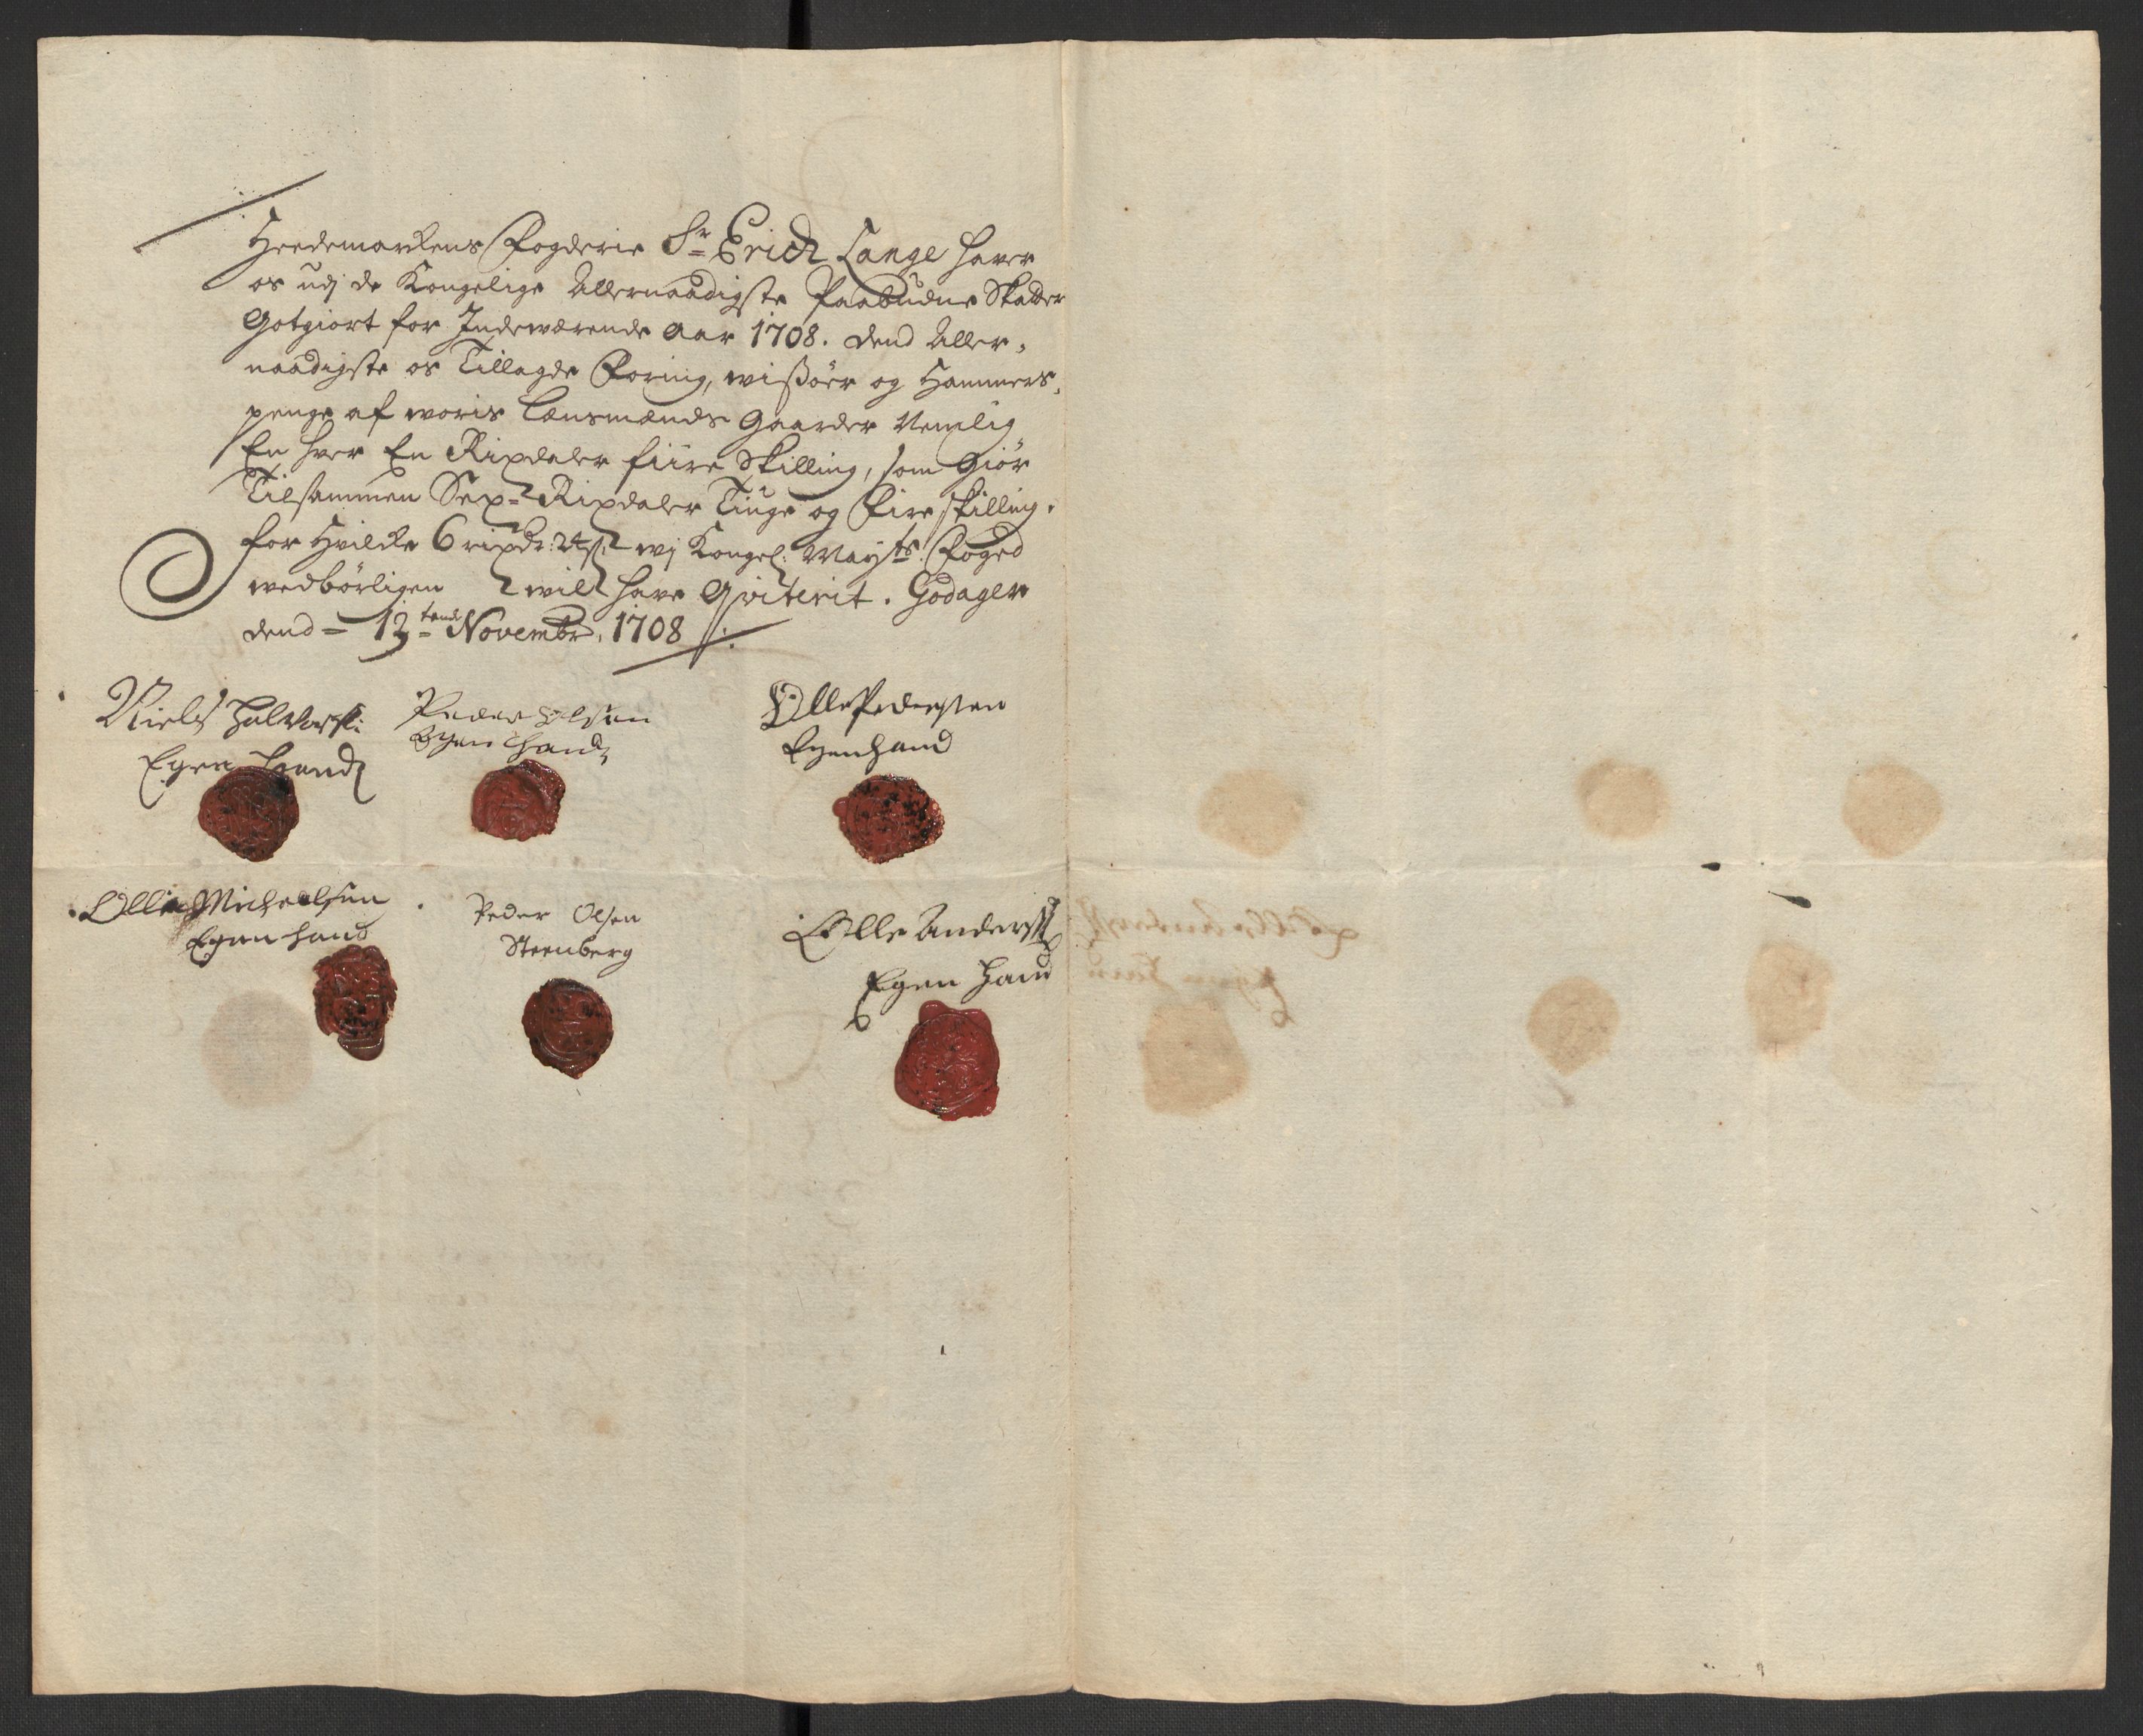 Heedemarkens Fogderie Sr Erich Lange haver
os udj de Kongelige Allernaadigste Paabudne Skatter
Gotgiort for Indeværende Aar 1708. dend Aller,
naadigste os Tillagde Foring, wißöer og Hammers,
penge af woris Lænsmænds Gaarder Nemlig
En hver En Rixdaler fiire Skilling, som Giör
Tilsammen Sex Rixdaler Tiuge og Fire skilling.
for Hvilke 6 rixdr: 24 s: wj Kongel: Mayts Foged
wedbörligen will have Qviterit. Godager
dend 13tend Novembr, 1708
Niels Halvors:
Egen Haand
Peder Olsen
Egen Haand
Olle Pedersen
Egenhand
Olle Michaelsen
Egen hand
Peder Olsen
Steenberg
Olle Anders
Egen Hand